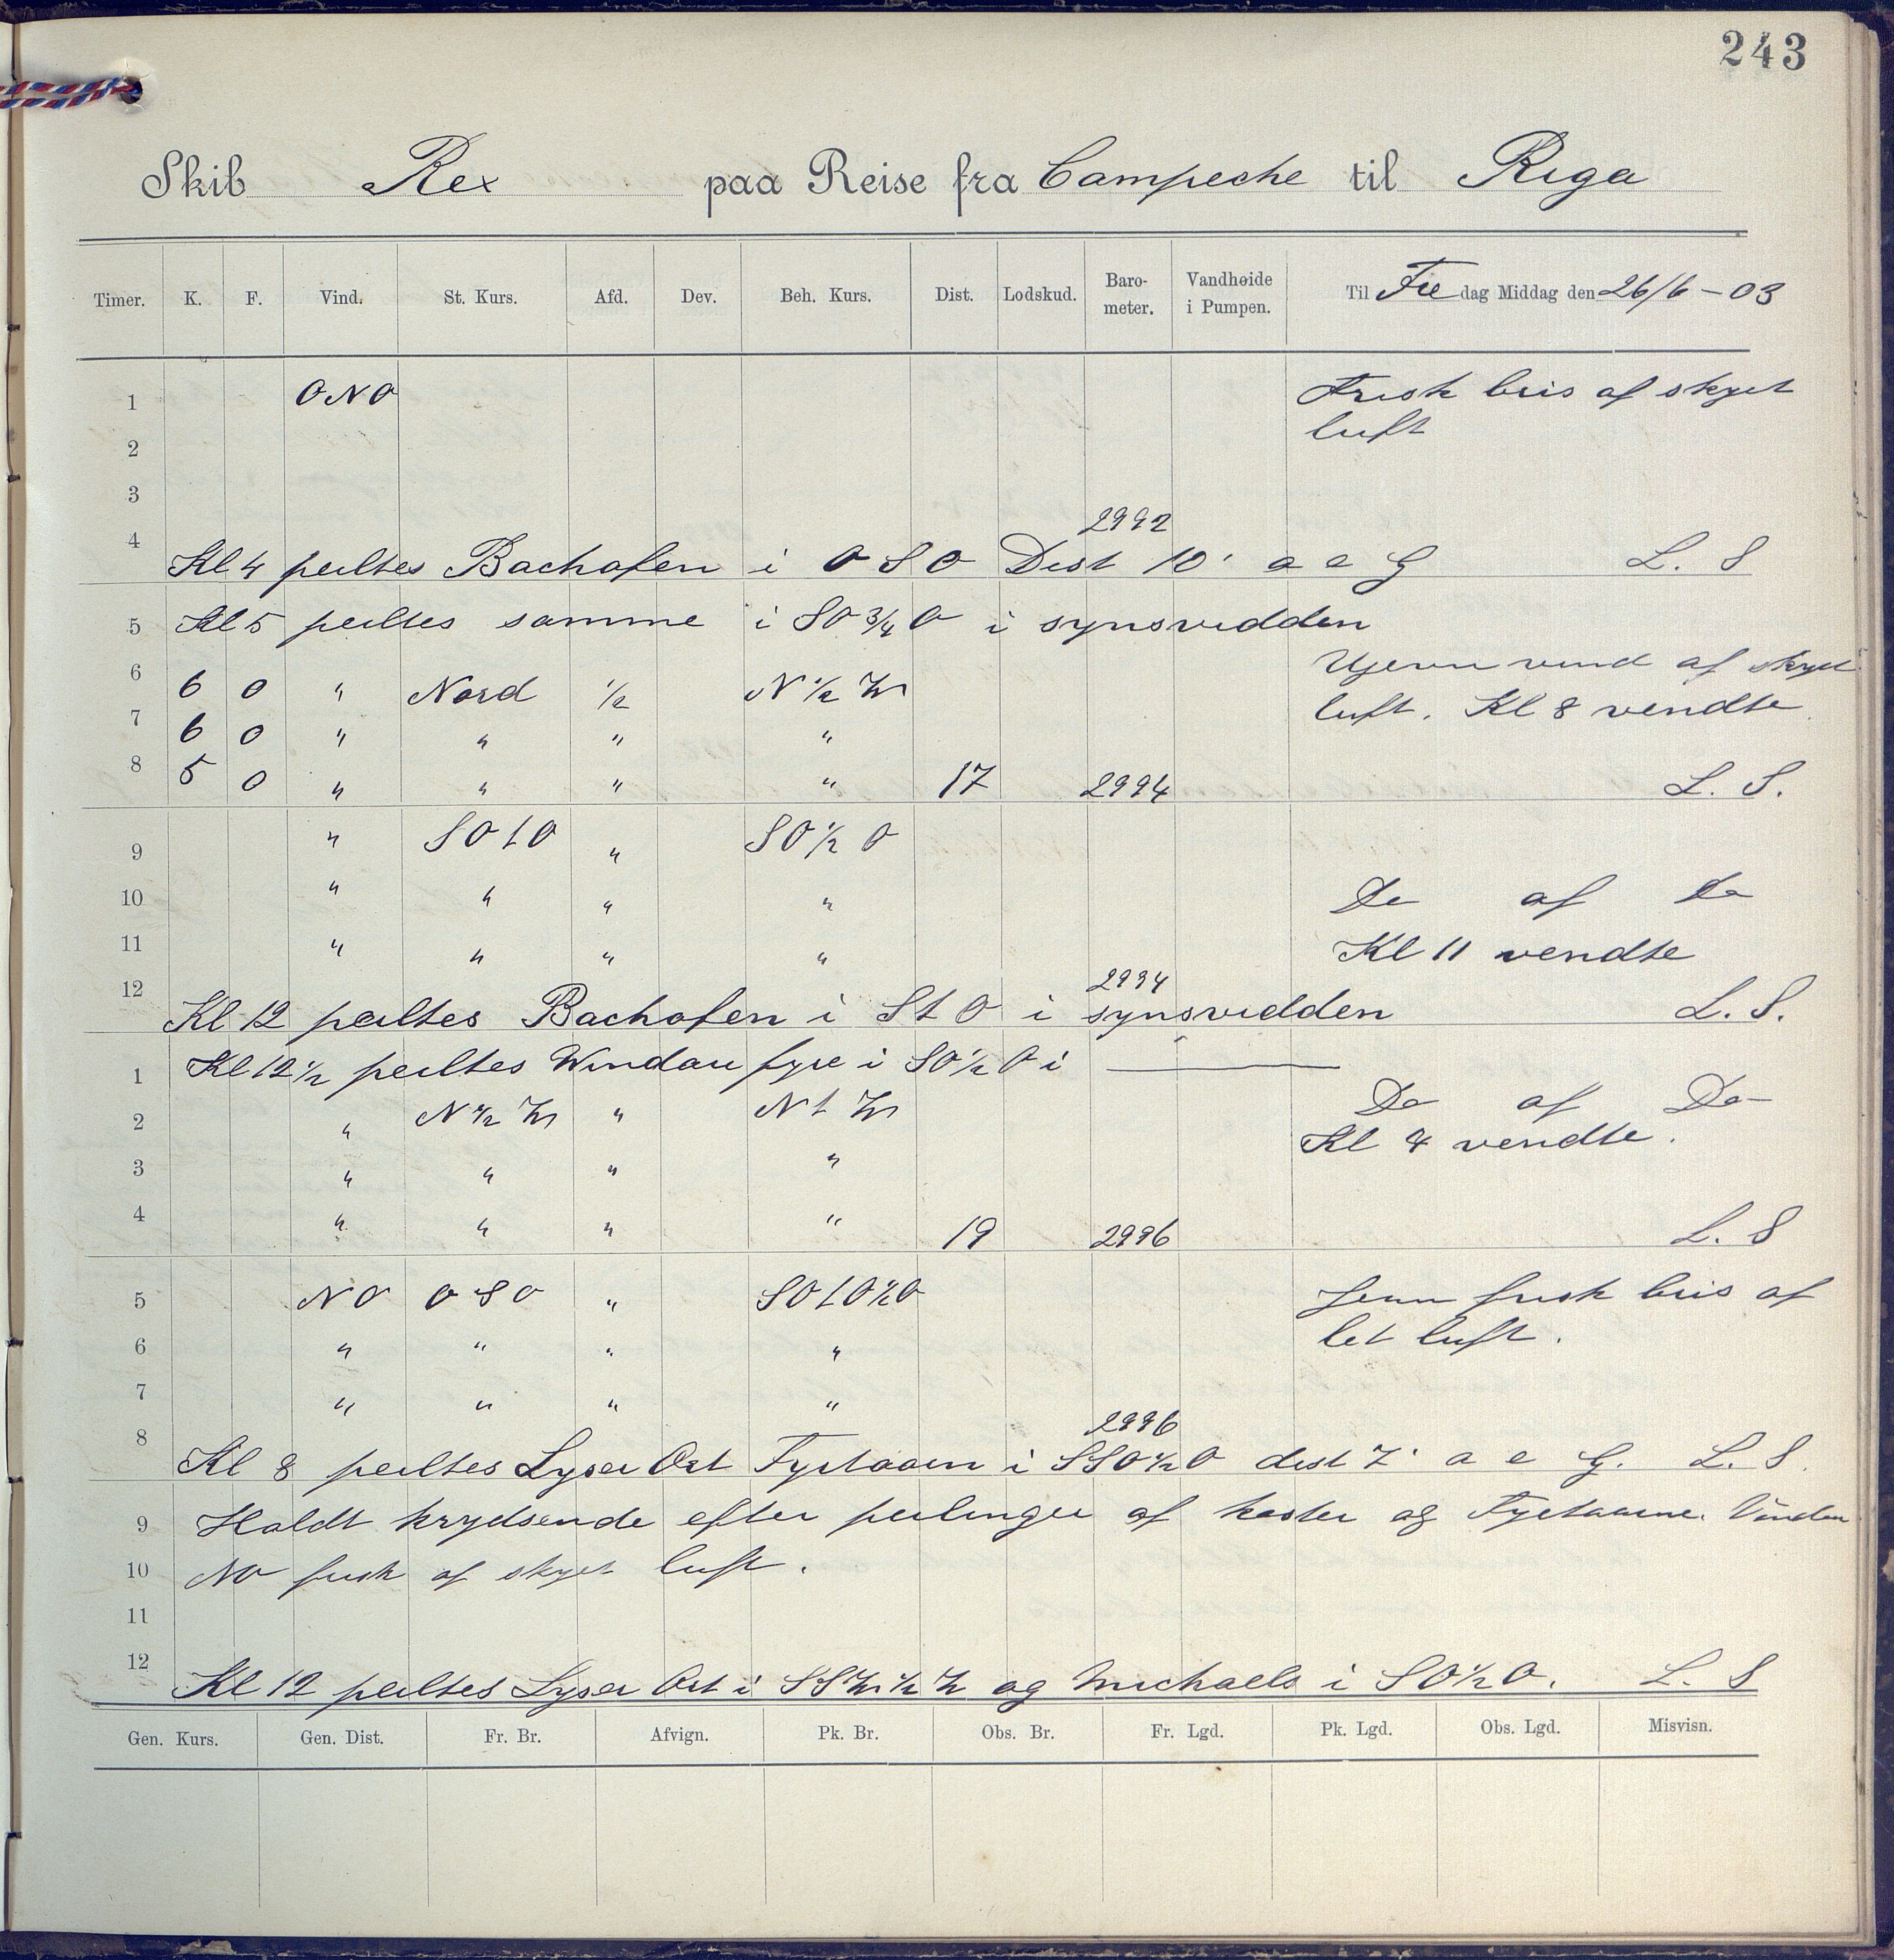 243
Skib Rex paa Reise fra Campeche til Riga
Timer. K. F. Vind. St. Kurs. Afd. Dev. Beh. Kurs. Dist. Lodskud. Baro-meter. Vandhøide i Pumpen. Til Fredag Middag den 26/6 - 03
1 ONO Frisk bris af skyet
2 luft
3
2992
4 Kl 4 peiltes Backofen i OSO Dist 10' a e G L. S
5 Kl 5 peiltes samme i SO 3/4 O i synsvidden
6 6 0 " Nord 1/2 N 1/2 W Ujevn vind af skyet
7 6 0 " " " " luft. Kl 8 vendte
8 5 0 " " " " 17 2994 L. S.
9 " SO t O " SO 1/2 O
10 " " " " Do af Do
11 " " " " Kl 11 vendte
2994
12 Kl 12 peiltes Backofen i S t O i synsvidden L. S.
1 Kl 12 1/2 peiltes Windau fyre i SO 1/2 O i —
2 " N 1/2 W " N t W Do af Do
3 " " " " Kl 4 vendte.
4 " " " " 19 2996 L. S
5 NO OSO " SO t O 1/2 O Jevn frisk bris af
6 " " " " let luft.
7 " " " "
2996
8 Kl 8 peiltes Lyser Ort Fyrtaarn i SSO 1/2 O dist 7' a e G. L. S.
9 Holdt krydsende efter peilinger af kaster og Fyrtaarne. Vinden
10 NO frisk af skyet luft.
11
12 Kl 12 peiltes Lyser Ort i SSW 1/2 W og Michaels i SO 1/2 O. L. S
Gen. Kurs. Gen. Dist. Fr. Br. Afvign. Pk. Br. Obs. Br. Fr. Lgd. Pk. Lgd. Obs. Lgd. Misvisn.